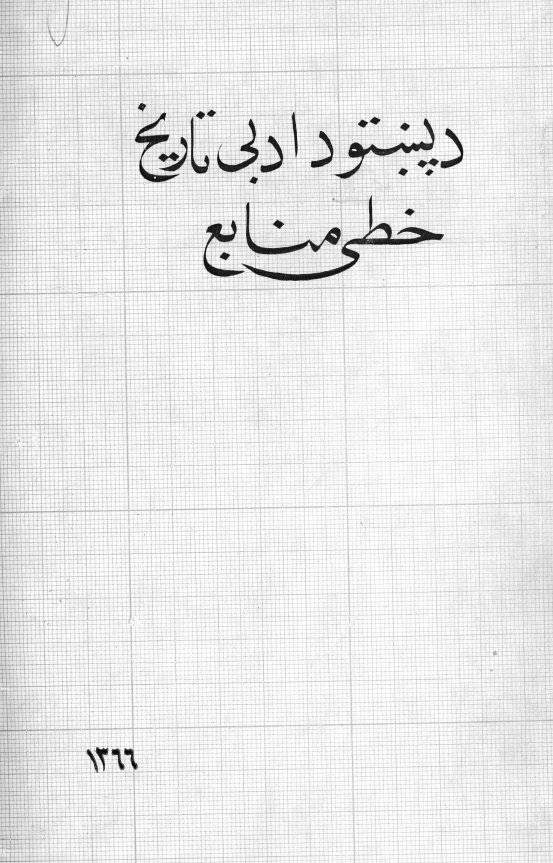 د پښتو د ادبی تاریخ
خطی منابع
۱۳۶۶